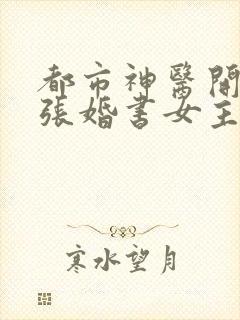 都市神醫開
張婚書女主
寒水望月